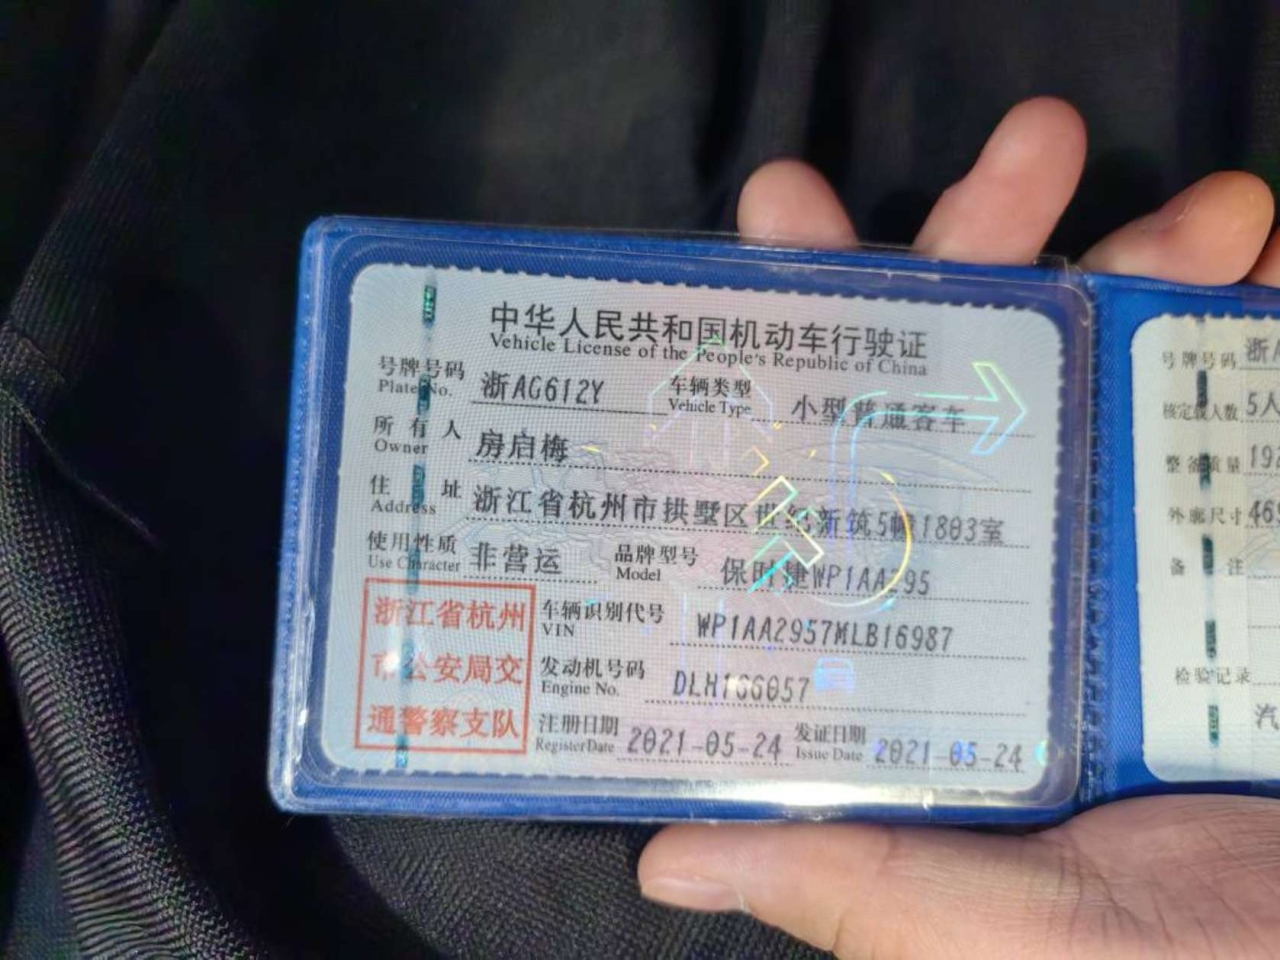 中华人民共和国机动车行驶证
Vehicle License of the People's Republic of China
号牌号码 浙AG612Y 车辆类型 小型普通客车
Plate No. Vehicle Type
所有人 房启梅
Owner
住址 浙江省杭州市拱墅区世纪新筑5幢1803室
Address
使用性质 非营运 品牌型号 保时捷WP1AA295
Use Character Model
浙江省杭州
市公安局交
通警察支队
车辆识别代号 WP1AA2957MLB16987
VIN
发动机号码 DLH166057
Engine No.
注册日期 2021-05-24 发证日期 2021-05-24
Register Date Issue Date
号牌号码 浙
核定载人数 5人
整备质量 19
外廓尺寸 46
备注
检验记录
汽